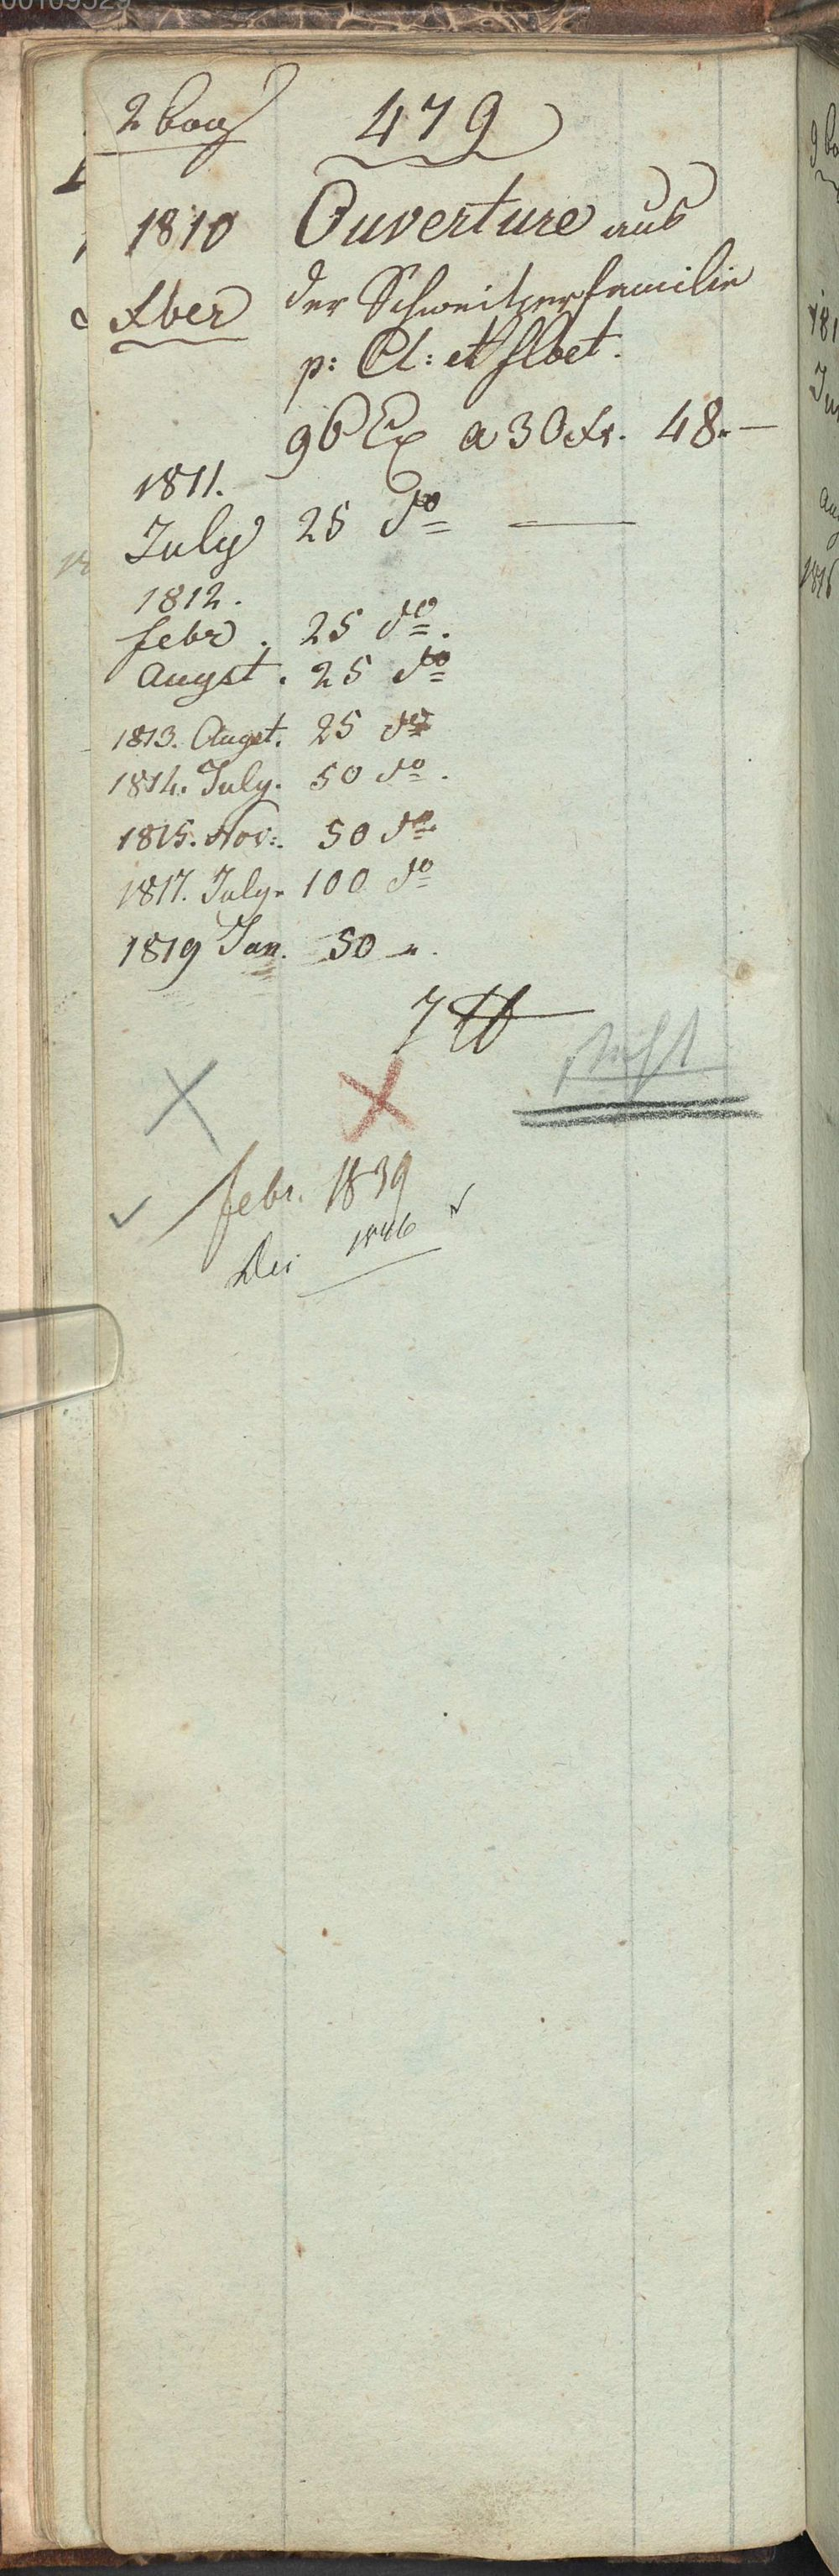 2 bog
479
1810 Ouverture aus
Xber der Schweitzerfamilie
p: Cl: et flbet.
96 Ex a 30 Xr. 48.—
1811.
July 25 do —
1812.
febr. 25 do.
Augst. 25 do
1813. Augst. 25 do
1814. July. 50 do.
1815. Nov:. 50 do
1817. July. 100 do
1819 Jan. 50 ".
7 tt
febr. 1839
Dei 1846